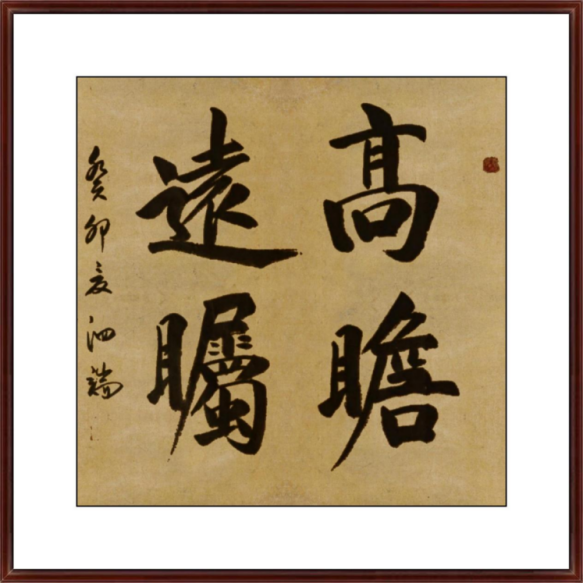 高瞻
遠矚
癸卯夏泗端